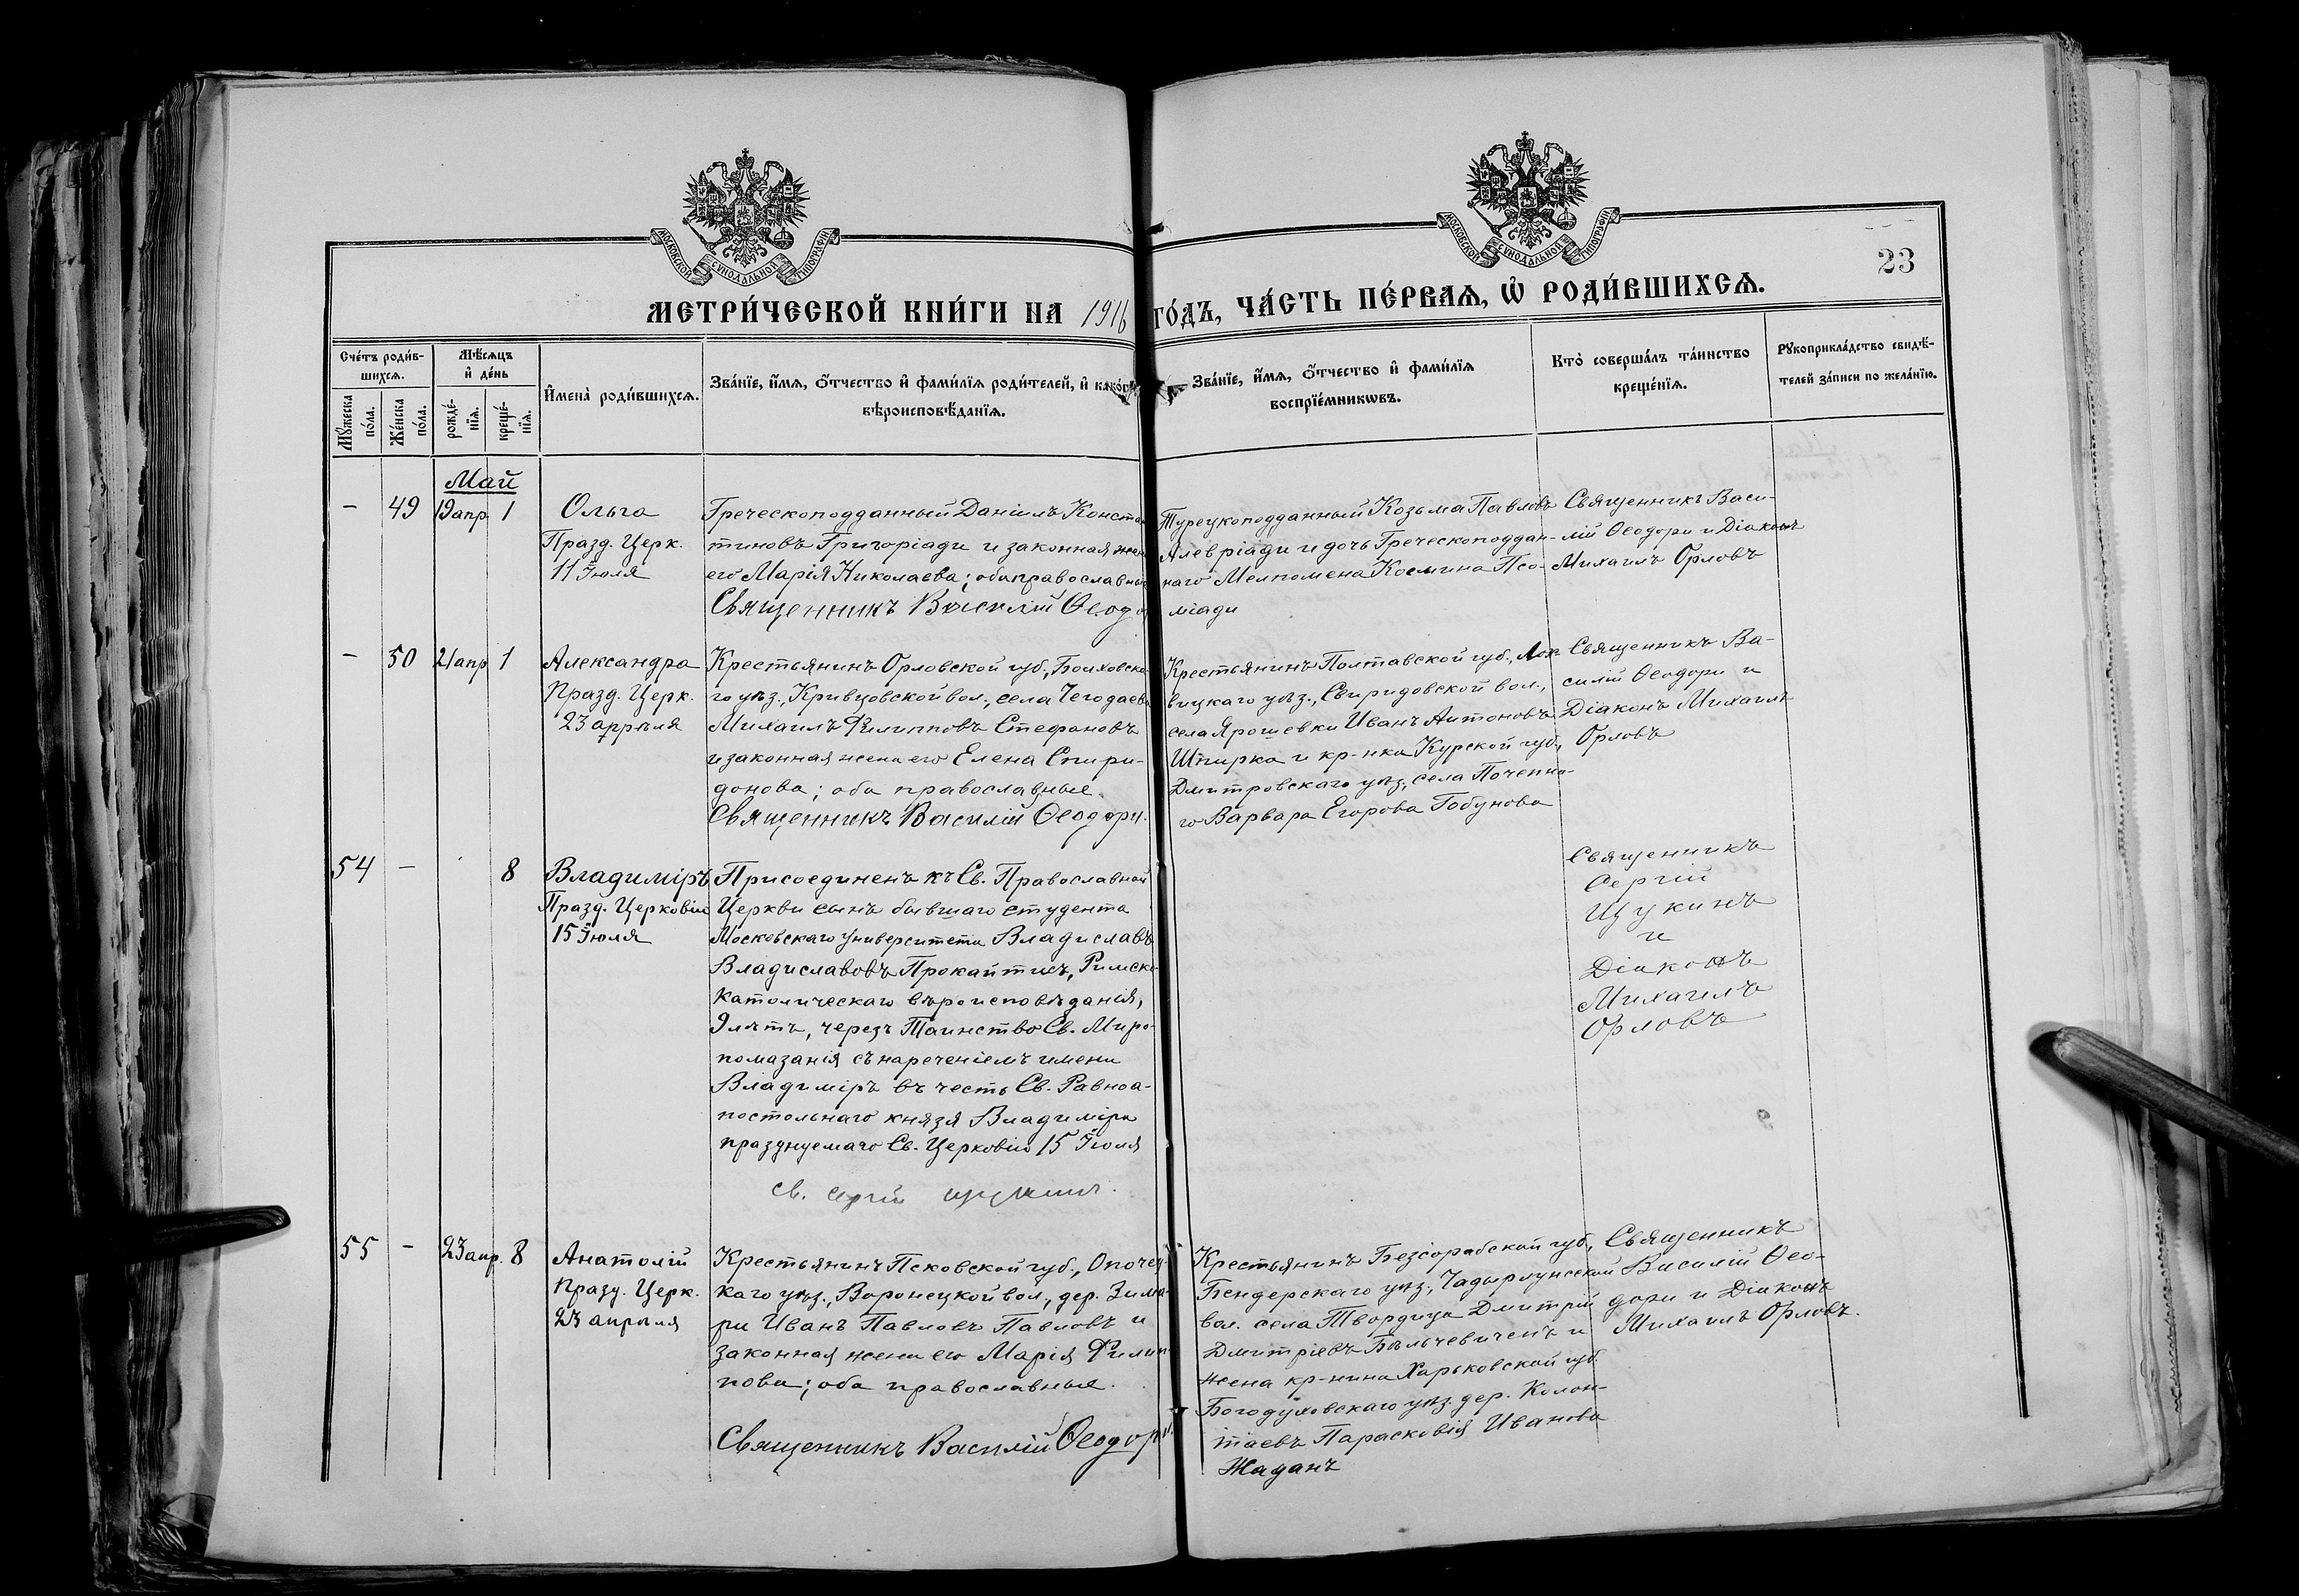 МОСКОВСКОЙ СѴНОДАЛЬНОЙ ТИПОГРАФІИ
МОСКОВСКОЙ СѴНОДАЛЬНОЙ ТИПОГРАФІИ
23
МЕТРИ́ЧЕСКОЙ КНИ́ГИ НА 1916 ГО́ДЪ, ЧА́СТЬ ПЕ́РВАѦ, Ѡ҆ РОДИ́ВШИХСѦ.
Сче́тъ роди́в-
шихсѧ.
Мꙋ́жеска
по́ла.
Же́нска
по́ла.
Мѣ́сѧцъ
и҆ де́нь
рожде́-
нїѧ.
креще́-
нїѧ.
И҆мена̀ роди́вшихсѧ.
Зва́нїе, и҆́мѧ, ѻ҆́тчество и҆ фами́лїѧ роди́телей, и҆ како́гѡ
вѣроисповѣ́данїѧ.
Зва́нїе, и҆́мѧ, ѻ҆́тчество и҆ фами́лїѧ
воспрїе́мникѡвъ.
Кто̀ соверша́лъ та́инство
креще́нїѧ.
Рꙋкоприкла́дство свидѣ́-
телей за́писи по жела́нїю.
Май
- 49 19 апр 1
Ольга
Празд. Церк.
11 Іюля
Греческоподданный Даніилъ Конста
тиновъ Григоріади и законная жен
его Марія Николаева; оба православные
Священникъ Василій Ѳеодо
Турецкоподданный Козьма Павловъ
Алевріади и дочь Греческоподдан-
наго Мелпомена Космина Псо-
міади
Священникъ Васи-
лій Ѳеодори и Діаконъ
Михаилъ Орловъ
- 50 21 апр 1
Александра
Празд. Церк.
23 апрѣля
Крестьянинъ Орловской губ., Болховска
го уѣз., Кривцовской вол., села Чегодаева
Михаилъ Филипповъ Стефановъ
и законная жена его Елена Спири-
донова; оба православные.
Священникъ Василій Ѳеодори.
Крестьянинъ Полтавской губ., Лох-
вицкаго уѣз., Свиридовской вол.,
села Ярошевки Иванъ Антоновъ
Шпирка и кр-нка Курской губ.,
Дмитровскаго уѣз., села Почепно-
го Варвара Егорова Гобунова
Священникъ Ва-
силій Ѳеодори и
Діаконъ Михаилъ
Орловъ
54 - 8
Владиміръ
Празд. Церковію
15 Іюля
Присоединенъ къ Св. Православной
Церкви сынъ бывшаго студента
Московскаго Университета Владиславъ
Владиславовъ Прокайтисъ, Римско
католическаго вѣроисповѣданія,
9 лѣтъ, черезъ Таинство Св. Миро-
помазанія съ нареченіемъ имени
Владиміръ въ честь Св. Равноа-
постольнаго князя Владиміра
празднуемаго Св. Церковію 15 Іюля
св. Сергій Щукинъ.
Священникъ
Сергій
Щукинъ
и
Діаконъ
Михаилъ
Орловъ
55 - 23 апр. 8
Анатолій
Празд. Церк.
23 апрѣля
Крестьянинъ Псковской губ., Опочец-
каго уѣз., Воронецкой вол., дер. Зима-
ри Иванъ Павловъ Павловъ и
законная жена его Марія Филип-
пова; оба православные.
Священникъ Василій Ѳеодори.
Крестьянинъ Бессарабской губ.,
Бендерскаго уѣз., Чадырлунгской
вол. села Твардица Дмитрій
Дмитріевъ Бѣльчевичевъ и
жена кр-нина Харьковской губ.
Богодуховскаго уѣз. дер. Колон-
таевъ Парасковія Иванова
Жаданъ
Священникъ
Василій Ѳео-
дори и Діаконъ
Михаилъ Орловъ.